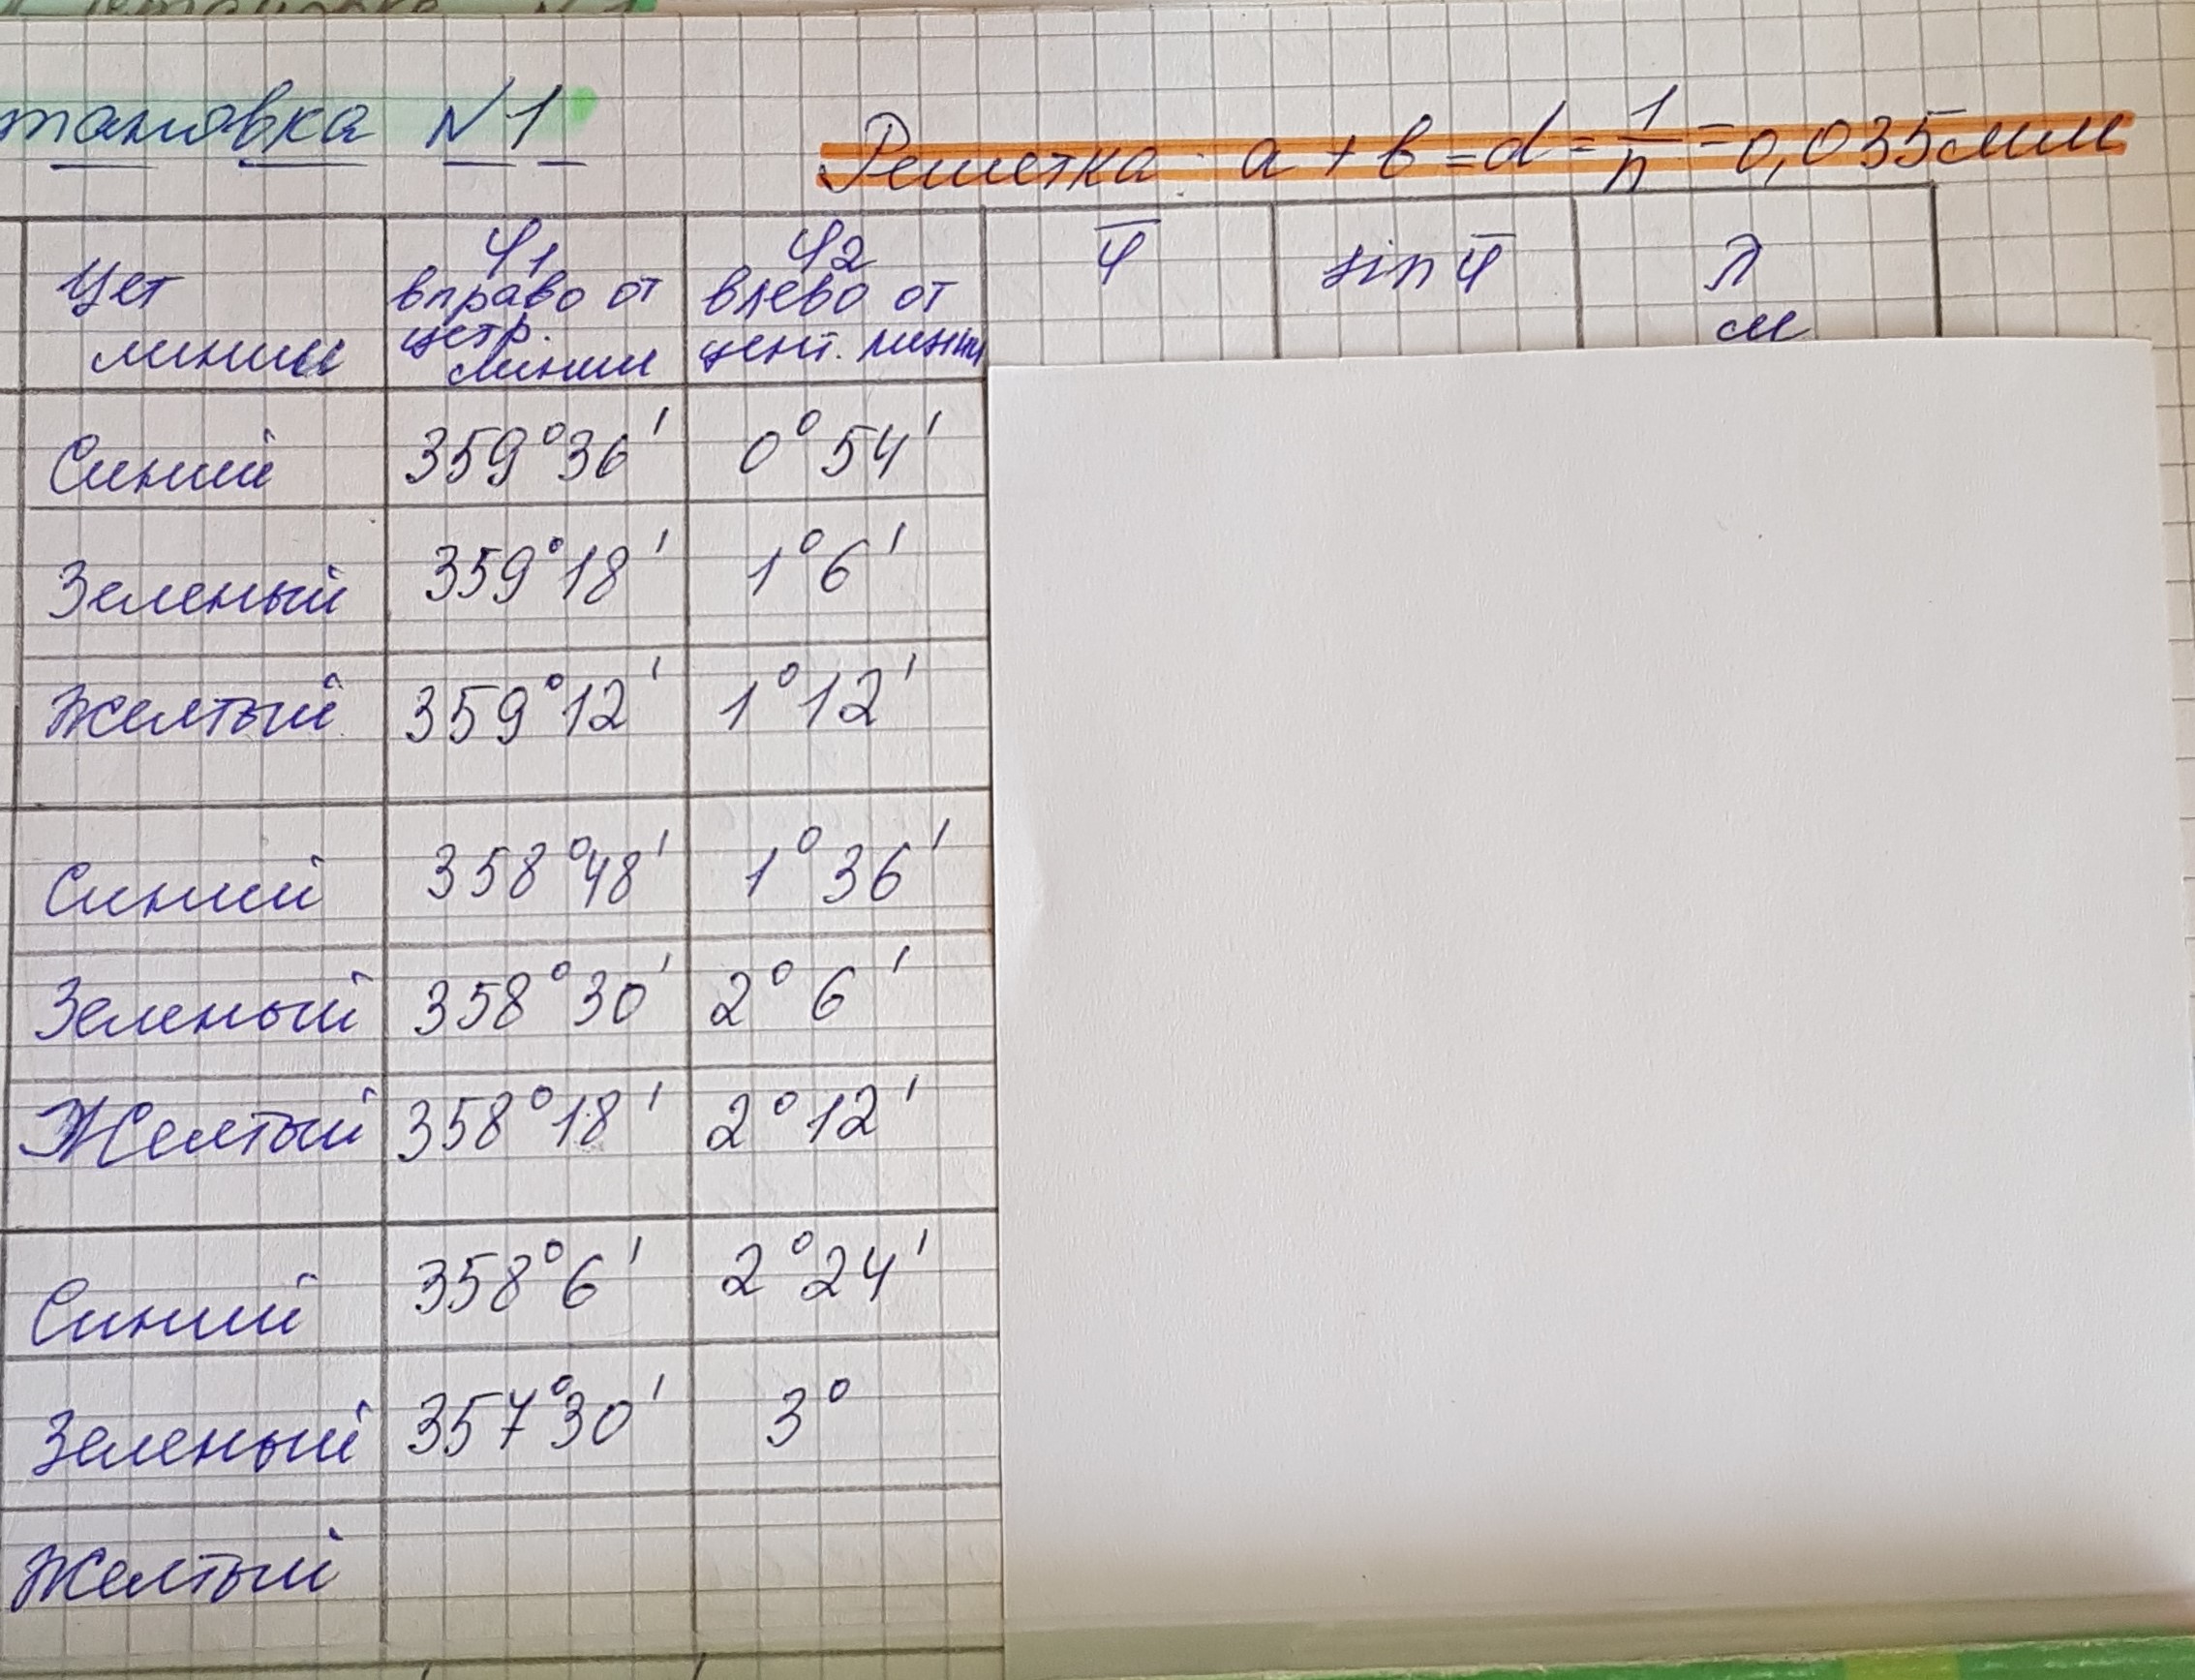 тановка N1
Решетка: a + b = d = 1/n = 0,035 мм
Цет линии | φ1 вправо от цетр. линии | φ2 влево от цент. линии | φ̅ | sin φ̅ | λ м
Синий | 359°36' | 0°54'
Зеленый | 359°18' | 1°6'
Желтый | 359°12' | 1°12'
Синий | 358°48' | 1°36'
Зеленый | 358°30' | 2°6'
Желтый | 358°18' | 2°12'
Синий | 358°6' | 2°24'
Зеленый | 357°30' | 3°
Желтый